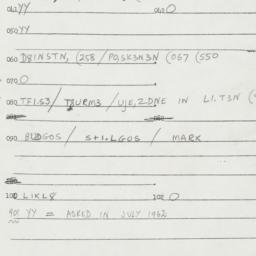 041 YY 042 O
050 YY
060 D8INSTN, (258 / PO,SK3N3N (067 (550
070 O
080 TFI.S3/ T8URM3 / UJE,2.DNE IN L1.T3N (
090 / S+I.LGOS / MARK
100 LIKL8 102 O
901 YY = ASKED IN JULY 1962